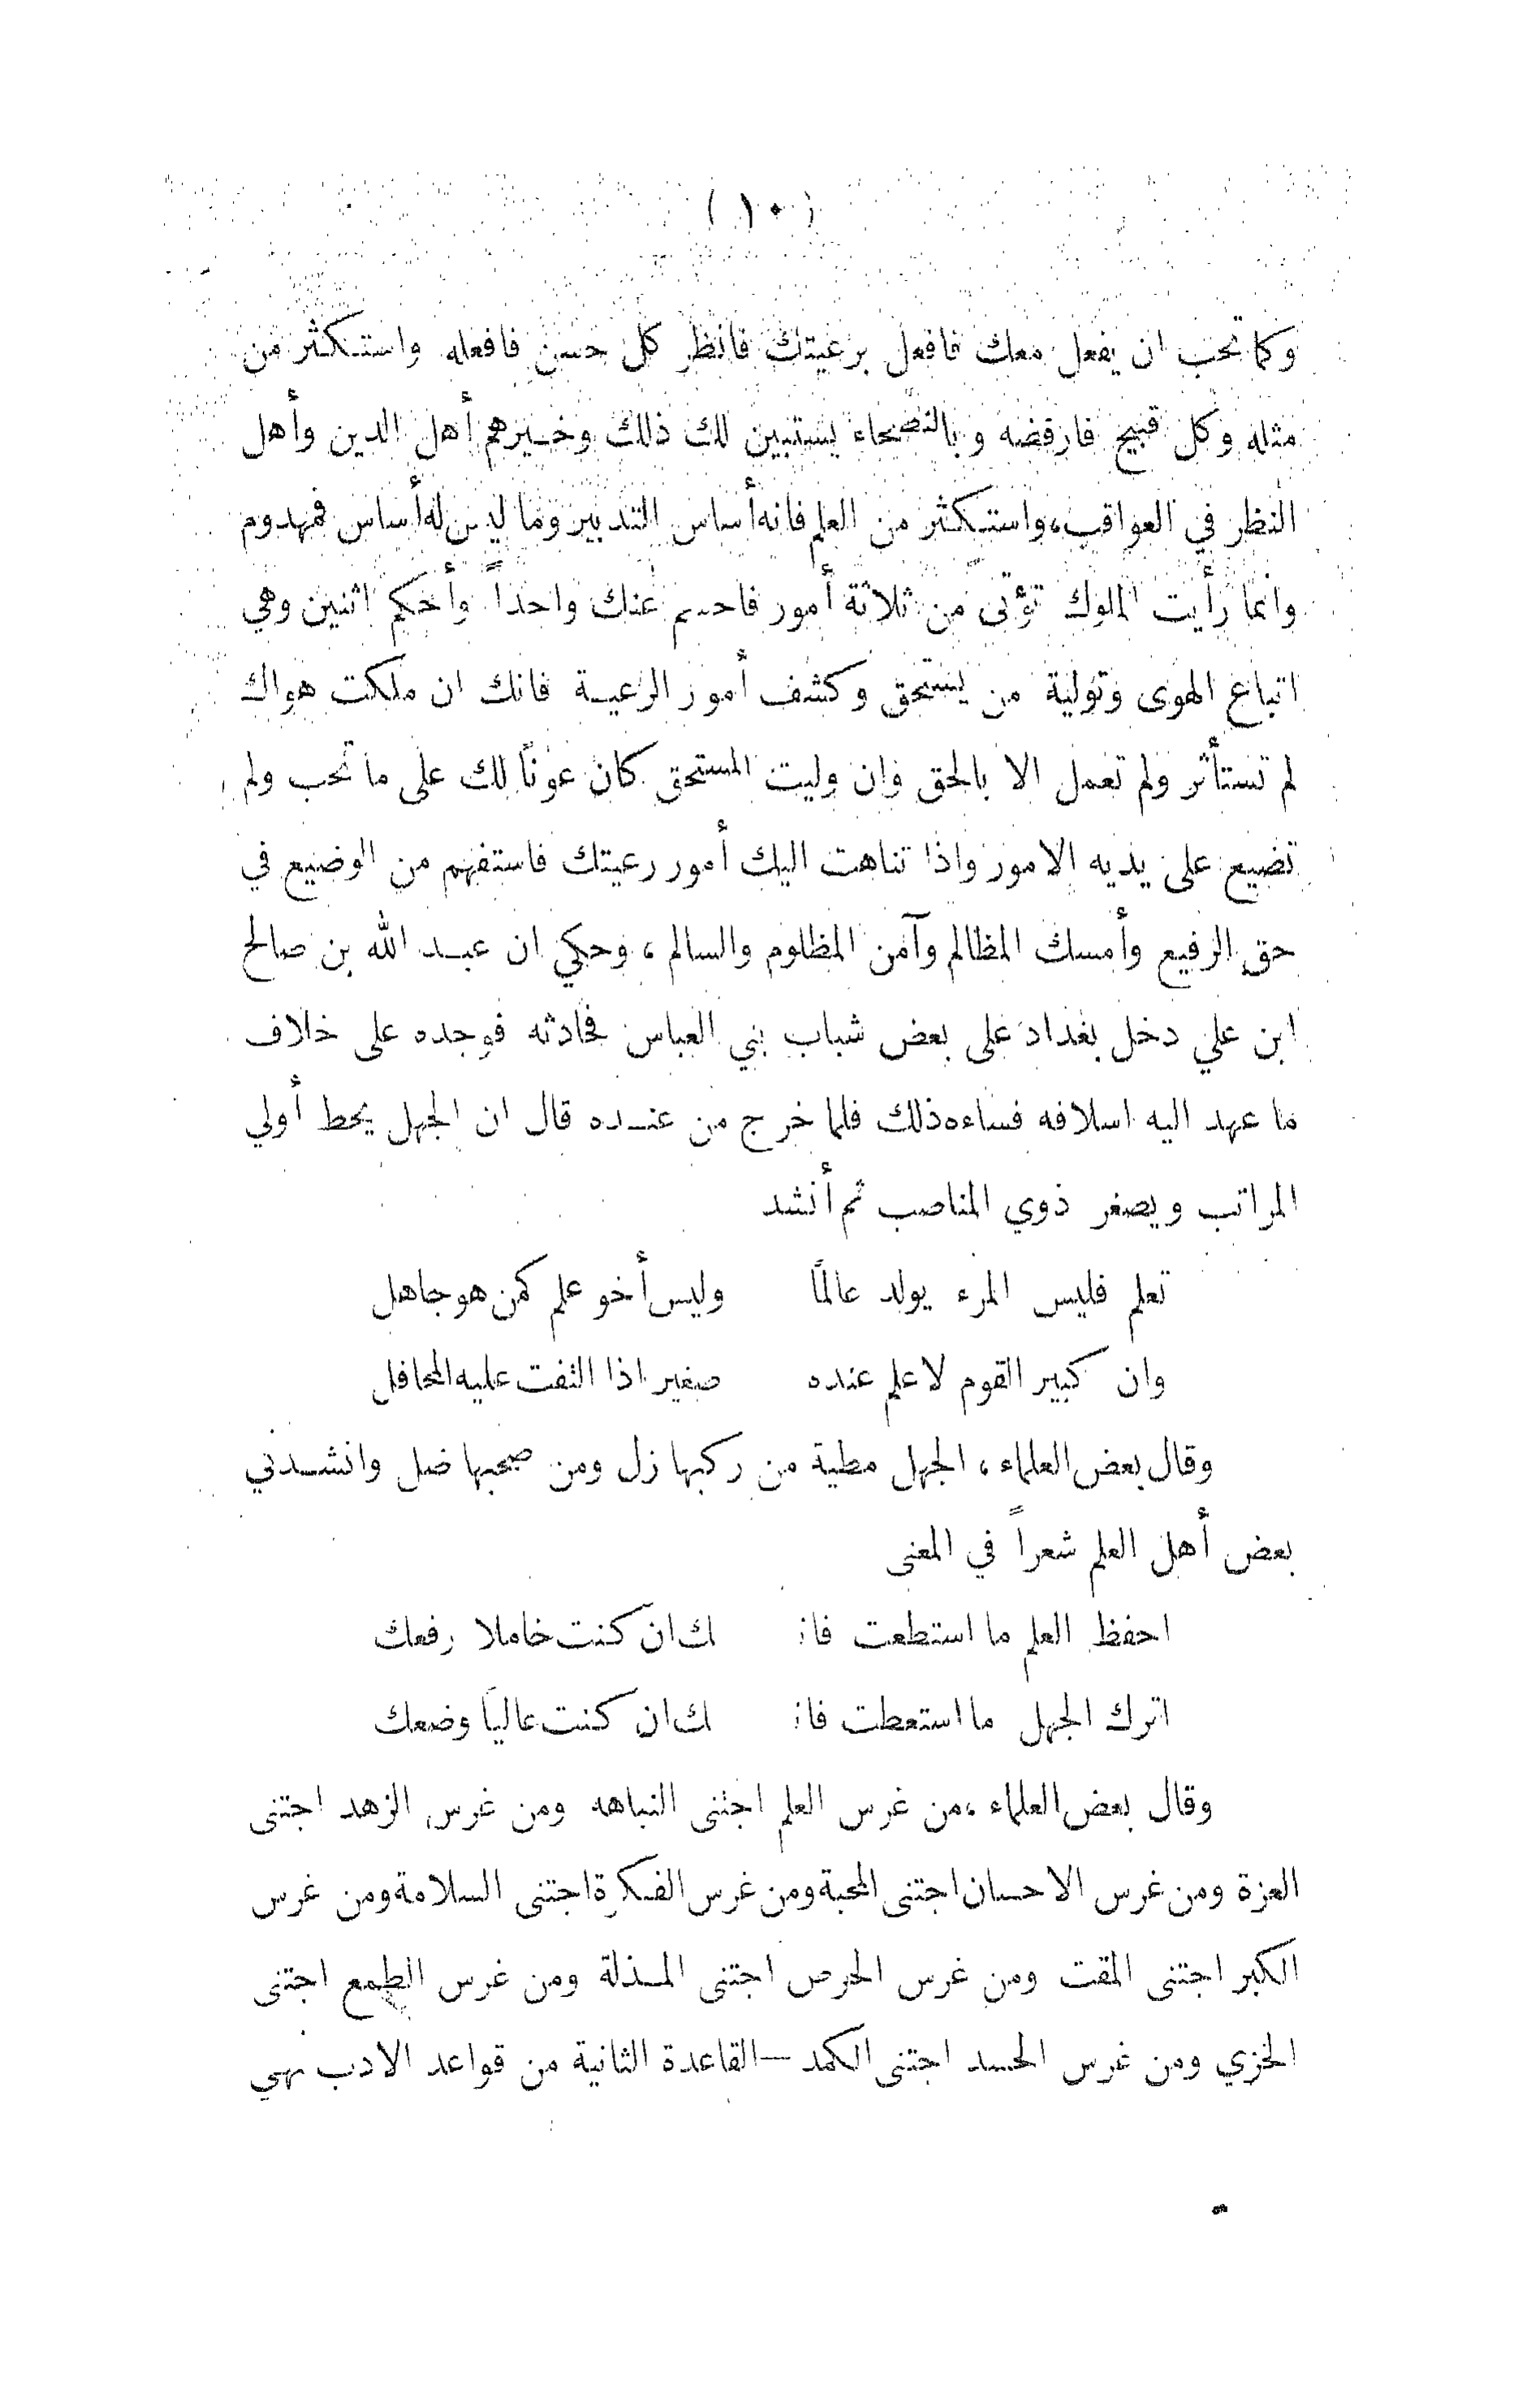 (١٠)
وكما تحب ان يفعل معك فافعل برعيتك فانظر كل حسن فافعله واستكثر من
مثله وكل قبيح فارفضه وبالنصحاء يستبين لك ذلك وخيرهم أهل الدين وأهل
النظر في العواقب، واستكثر من العلم فانه أساس التدبير وما ليس له أساس فمهدوم
وانما رأيت الملوك تؤتى من ثلاثة أمور فاحسم عنك واحداً وأحكم اثنين وهي
اتباع الهوى وتولية من يستحق وكشف أمور الرعية فانك ان ملكت هواك
لم تستأثر ولم تعمل الا بالحق وان وليت المستحق كان عوناً لك على ما تحب ولم
تضيع على يديه الامور واذا تناهت اليك أمور رعيتك فاستفهم من الوضيع في
حق الرفيع وأمسك المظالم وآمن المظلوم والسالم، وحكي ان عبد الله بن صالح
ابن علي دخل بغداد على بعض شباب بني العباس فحادثه فوجده على خلاف
ما عهد اليه اسلافه فساءه ذلك فلما خرج من عنده قال ان الجهل يحط أولي
المراتب ويصغر ذوي المناصب ثم أنشد
تعلم فليس المرء يولد عالماً وليس أخو علم كمن هو جاهل
وان كبير القوم لا علم عنده صغير اذا التفت عليه المحافل
وقال بعض العلماء، الجهل مطية من ركبها زل ومن صحبها ضل وانشدني
بعض أهل العلم شعراً في المعنى
احفظ العلم ما استطعت فانـ ـك ان كنت خاملا رفعك
اترك الجهل ما استعطت فانـ ـك ان كنت عالياً وضعك
وقال بعض العلماء، من غرس العلم اجتنى النباهه ومن غرس الزهد اجتنى
العزة ومن غرس الاحسان اجتنى المحبة ومن غرس الفكرة اجتنى السلامة ومن غرس
الكبر اجتنى المقت ومن غرس الحرص اجتنى المذلة ومن غرس الطمع اجتنى
الخزي ومن غرس الحسد اجتنى الكمد —القاعدة الثانية من قواعد الادب نهي